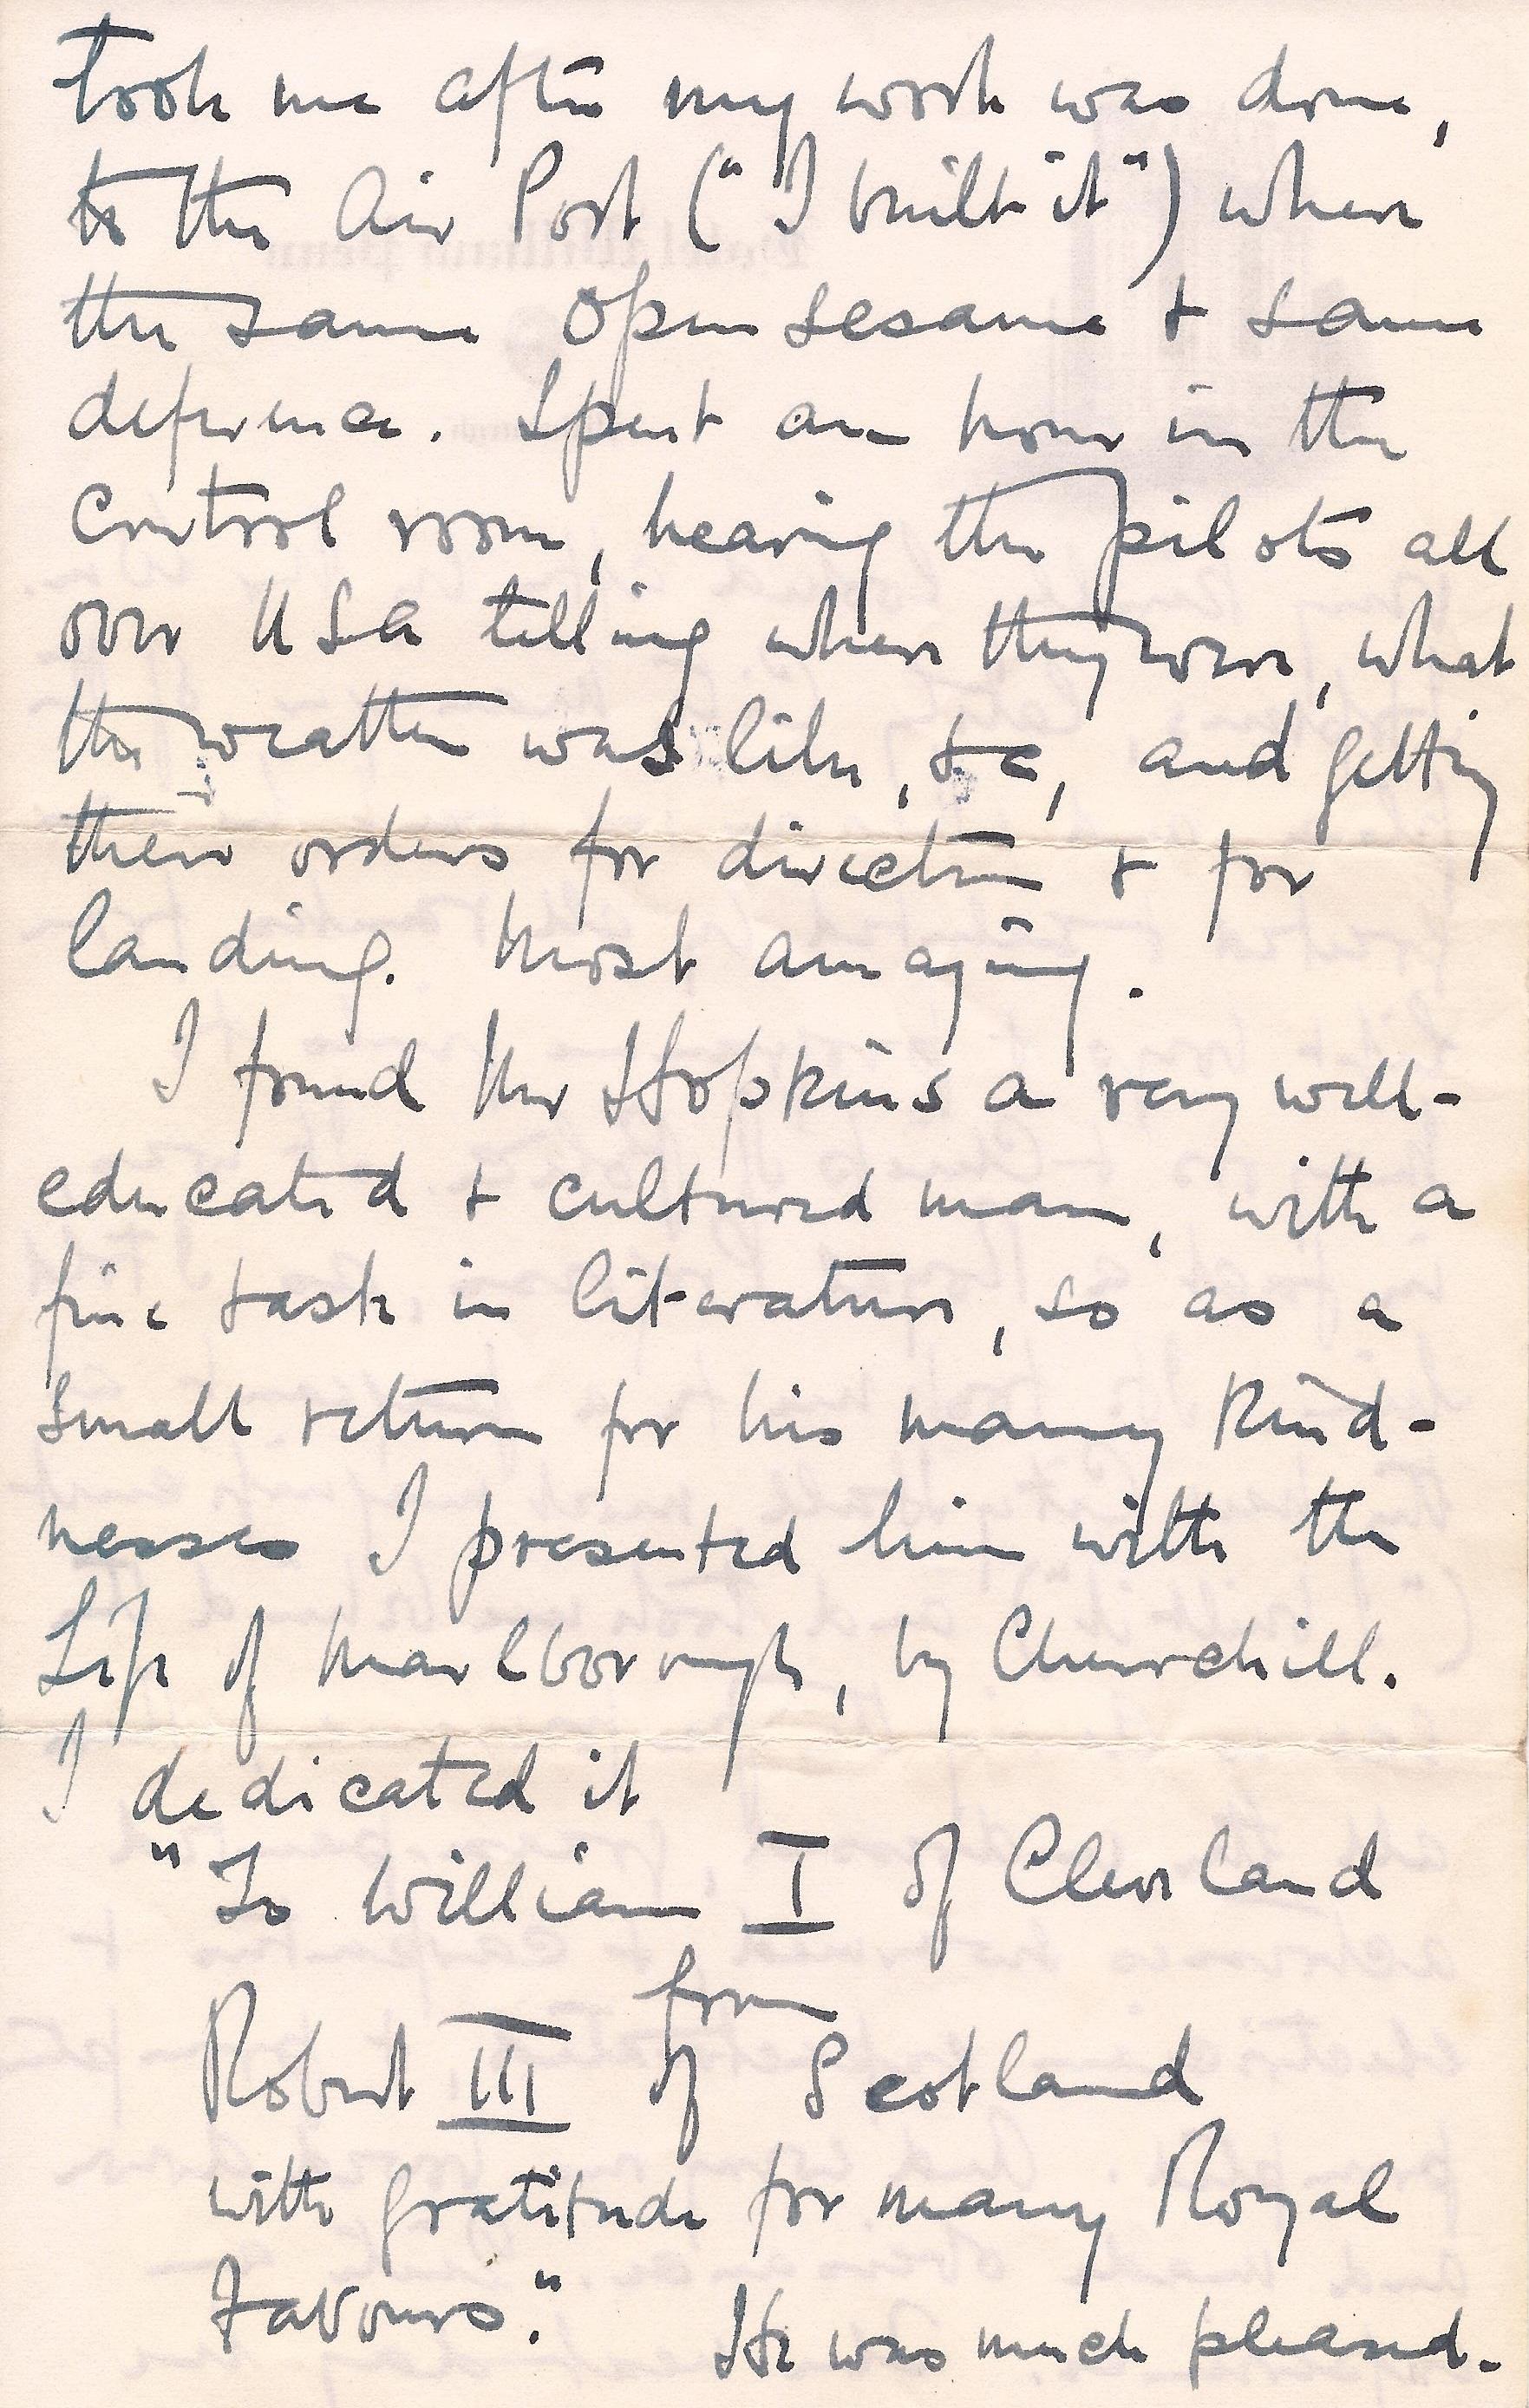 took me after my work was done,
to the Air Port ("I built it") where
the same open sesame & same
deference. Spent an hour in the
control room, hearing the pilots all
over USA telling where they were, what
the weather was like, &c, and getting
their orders for direction & for
landing. Most amazing.
I found Mr Hopkins a very well-
educated & cultured man, with a
fine taste in literature, so as a
small return for his many kind-
nesses I presented him with the
Life of Marlborough, by Churchill.
I dedicated it
"To William I of Cleveland
from
Robert III of Scotland
with gratitude for many Royal
Favours."  He was much pleased.